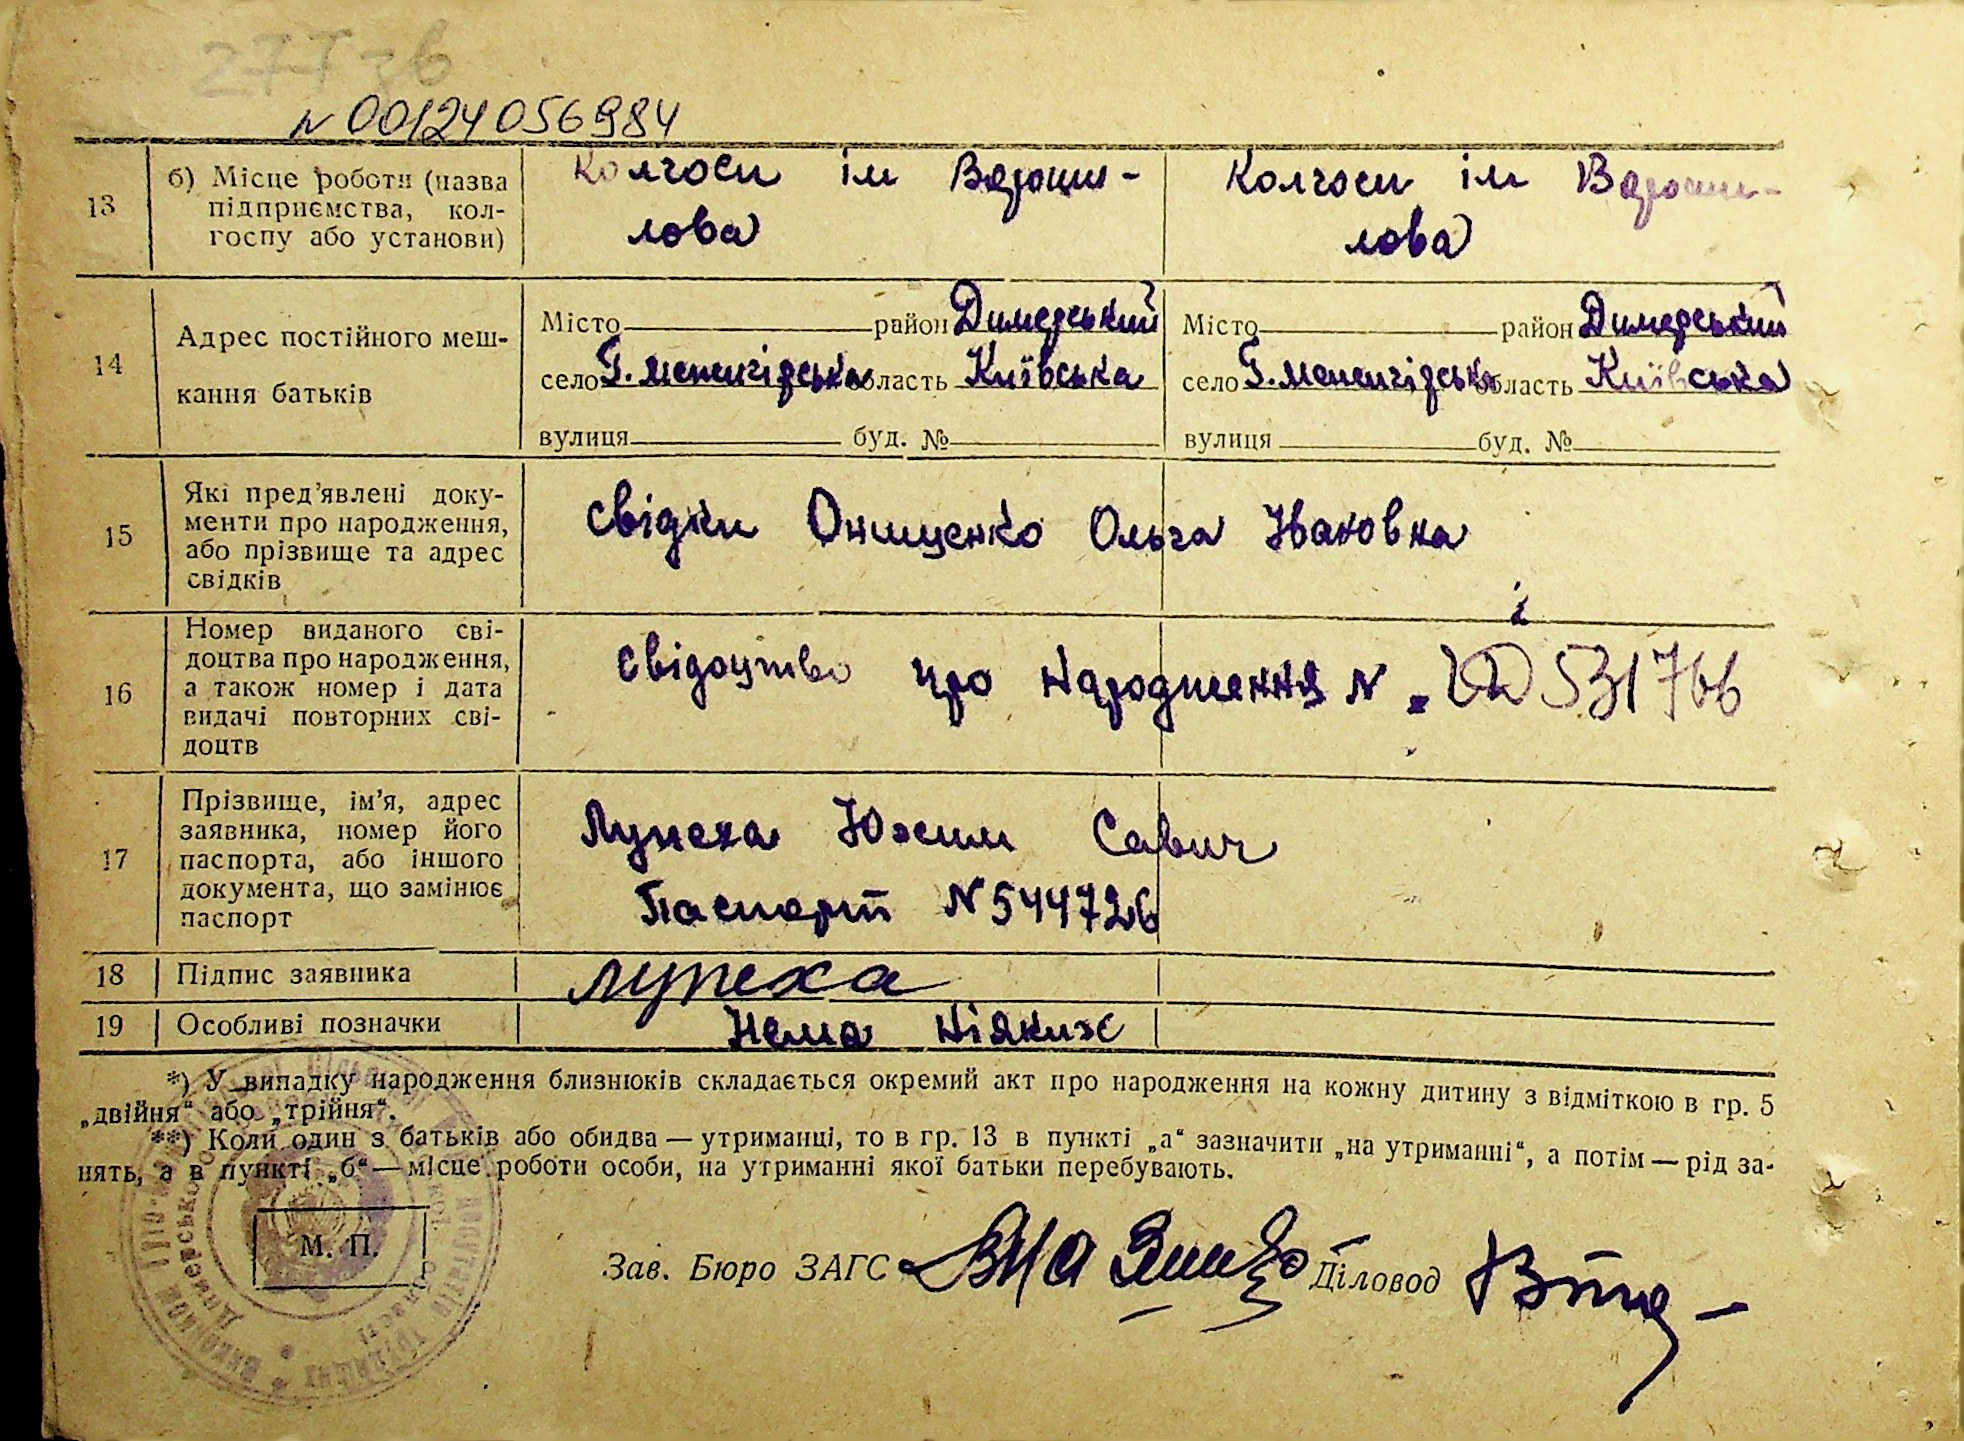 N 00124056984
13 б) Місце роботи (назва підприємства, колгоспу або установи)
Колгосп ім Вороши-
лова
Колгосп ім Вороши-
лова
14 Адрес постійного меш-
кання батьків
Місто район Димерський
село область Київська
вулиця буд. №
Місто район Димерський
село область Київська
вулиця буд. №
15 Які пред’явлені доку-
менти про народження,
або прізвище та адрес
свідків
свідки Онищенко Ольга Івановна
і
16 Номер виданого сві-
доцтва про народження,
а також номер і дата
видачі повторних сві-
доцтв
свідоцтво про народження N 531766
17 Прізвище, ім’я, адрес
заявника, номер його
паспорта, або іншого
документа, що замінює
паспорт
Лупеха Юхим Савич
Паспорт N 544726
18 Підпис заявника
лупеха
19 Особливі позначки
Нема ніяких
*) У випадку народження близнюків складається окремий акт про народження на кожну дитину з відміткою в гр. 5
„двійня“ або „трійня“.
**) Коли один з батьків або обидва — утриманці, то в гр. 13 в пункті „а“ зазначити „на утриманні“, а потім — рід за-
нять, а в пункті „б“ — місце роботи особи, на утриманні якої батьки перебувають.
М. П.
Зав. Бюро ЗАГС Діловод